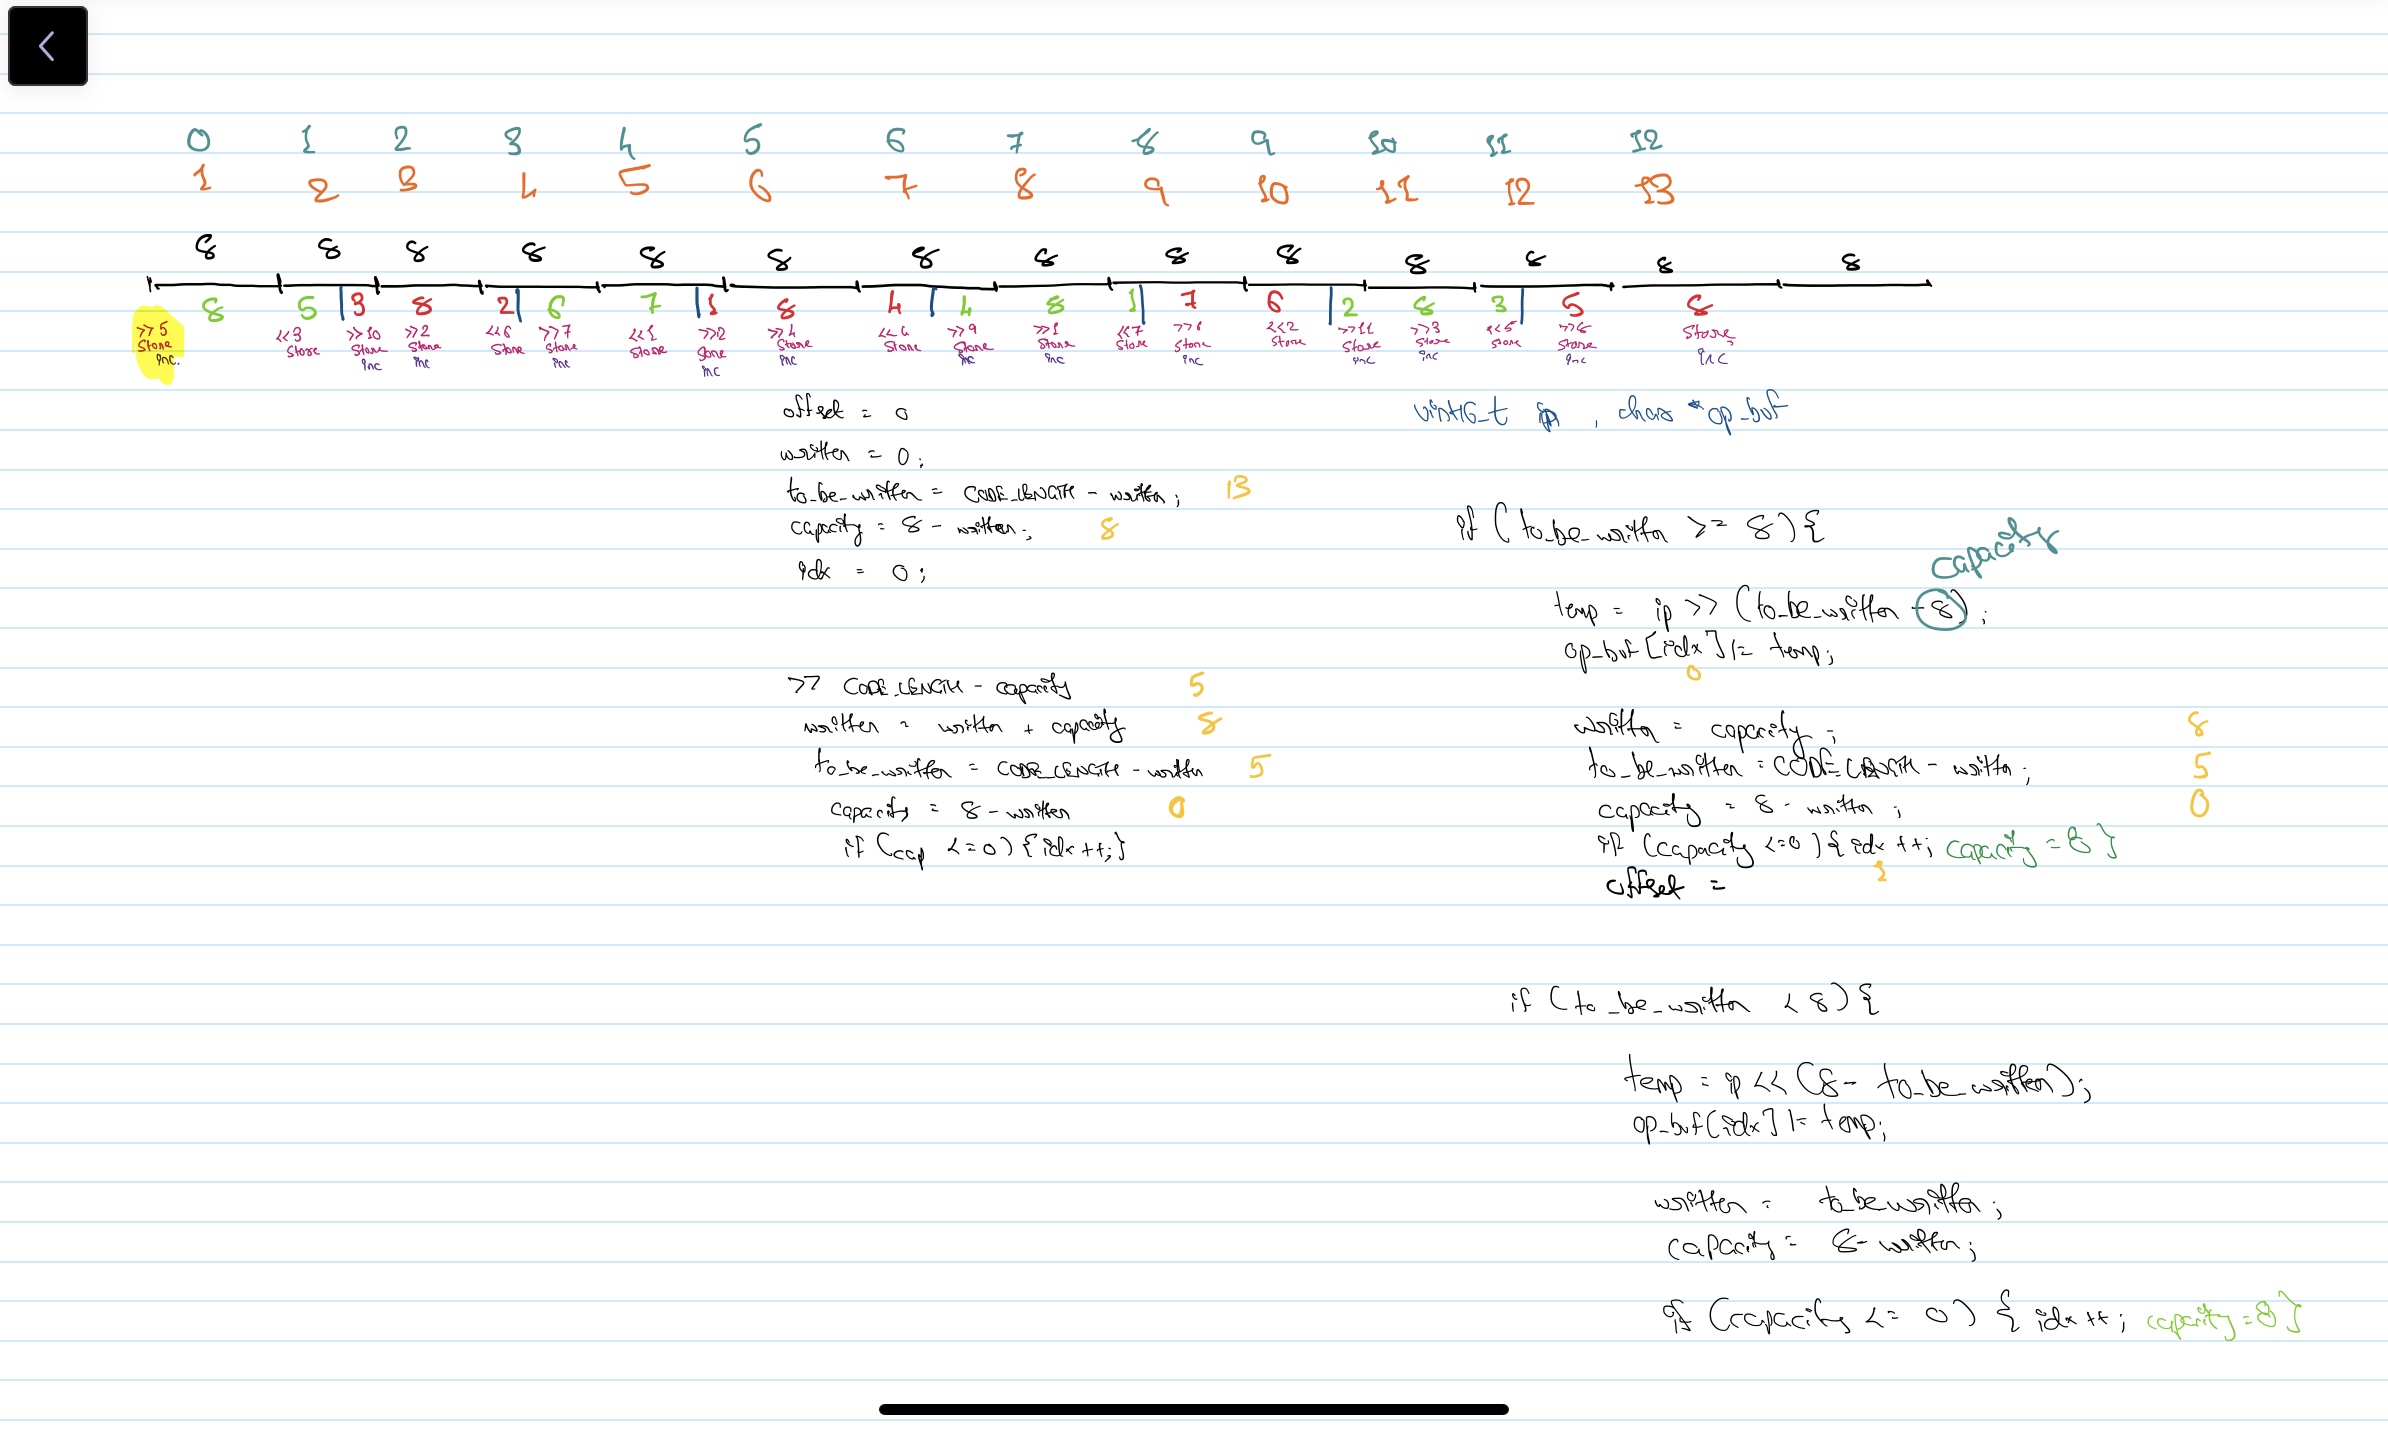 0 1 2 3 4 5 6 7 8 9 10 11 12
1 2 3 4 5 6 7 8 9 10 11 12 13
8 8 8 8 8 8 8 8 8 8 8 8 8 8
8 5 3 8 2 6 7 1 8 4 4 8 1 7 6 2 8 3 5 8
>>5 <<3 >>10 >>2 <<6 >>7 <<1 >>12 >>4 <<4 >>9 >>1 <<7 >>6 <<2 >>11 >>3 <<5 >>8 store,
store store store store store store store store store store store store store store store store store store store inc
inc. inc inc inc inc inc inc inc inc inc inc inc
offset = 0
written = 0;
to_be_written = CODE_LENGTH - written; 13
capacity = 8 - written; 8
idx = 0;
>> CODE_LENGTH - capacity 5
written = written + capacity 8
to_be_written = CODE_LENGTH - written 5
capacity = 8 - written 0
if (cap <=0) {idx ++;}
uint16_t ip , char *op_buf
if (to_be_written >= 8) {
capacity
temp = ip >> (to_be_written - 8);
op_buf [idx] |= temp;
0
written = capacity; 8
to_be_written = CODE_LENGTH - written; 5
capacity = 8 - written ; 0
if (capacity <=0) { idx ++; capacity = 8 }
1
offset =
if (to_be_written < 8) {
temp = ip << (8 - to_be_written);
op_buf [idx] |= temp;
written = to_be written;
capacity = 8 - written;
if (capacity <= 0) { idx ++; capacity = 8 }